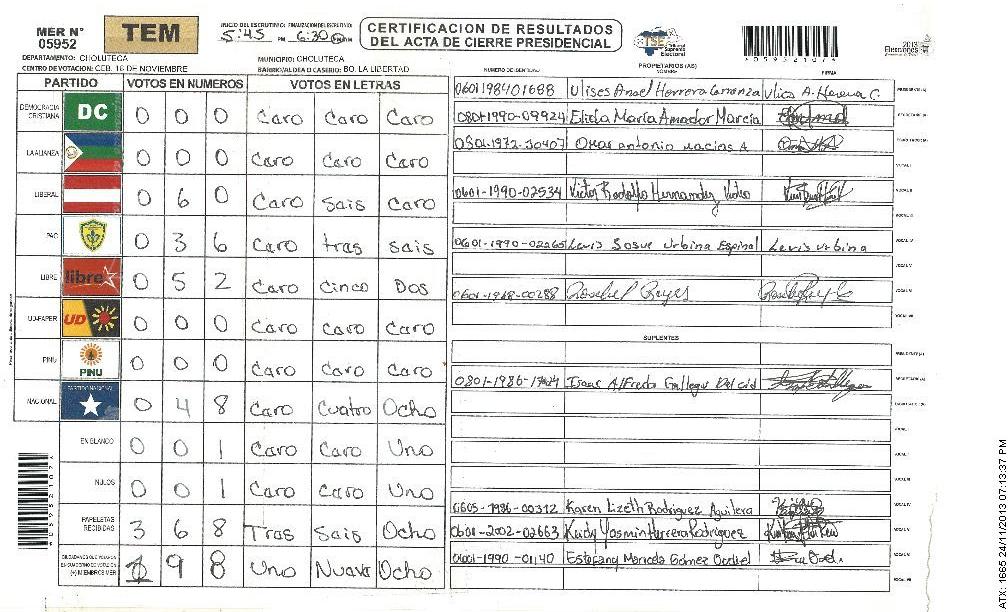 MER N° 05952
TEM
INICIO DEL ESCRUTINIO: FINALIZACION DEL ESCRUTINIO:
5:45 PM 6:30
CERTIFICACION DE RESULTADOS
DEL ACTA DE CIERRE PRESIDENCIAL
TSE Tribunal Supremo Electoral
A05952102A
2013
DEPARTAMENTO: CHOLUTECA
MUNICIPIO: CHOLUTECA
CENTRO DE VOTACION: CEB. 16 DE NOVIEMBRE
BARRIO/ALDEA O CASERIO: BO. LA LIBERTAD
PARTIDO VOTOS EN NUMEROS VOTOS EN LETRAS
DEMOCRACIA CRISTIANA DC 0 0 0 Caro Caro Caro
LA ALIANZA 0 0 0 Caro Caro Caro
LIBERAL 0 6 0 Caro Sais Caro
PAC 0 3 6 Caro tras sais
LIBRE libre 0 5 2 Caro Cinco Dos
UD-FAPER UD 0 0 0 Caro Caro Caro
PINU PINU 0 0 0 Caro Caro Caro
NACIONAL PARTIDO NACIONAL 0 4 8 Caro Cuatro Ocho
EN BLANCO 0 0 1 Caro Caro Uno
NULOS 0 0 1 Caro Caro Uno
PAPELETAS RECIBIDAS 3 6 8 Tras Sais Ocho
CIUDADANOS QUE VOTARON SEGUN CUADERNO DE VOTACION (+) MIEMBROS MER 1 9 8 Uno Nueva Ocho
PROPIETARIOS (AS)
NUMERO DE IDENTIDAD NOMBRE FIRMA
0601198401688 Ulises Anael Herrera Carranza Ulises A. Herrera C. PRESIDENTE (A)
0801-1990-09924 Elida María Amador Marcia SECRETARIO (A)
0501-1972-30407 Omar antonio macias A ESCRUTADOR (A)
VOCAL I
0601-1990-02534 Victor Rodolfo Hernandez VOCAL II
VOCAL III
0601-1990-02265 Levis Josue Urbina Espinal Levis Urbina VOCAL IV
VOCAL V
0601-1968-00288 Reyes VOCAL VI
VOCAL VII
SUPLENTES
PRESIDENTE (A)
0801-1986- Isaac Alfredo Gallegos Del cid SECRETARIO (A)
ESCRUTADOR (A)
VOCAL I
VOCAL II
VOCAL III
0605-1986-00312 Karen Lizeth Rodriguez Aguilera VOCAL IV
0601-2002-02663 Keidy Yasmin Herrera Rodriguez VOCAL V
-1990-01140 Estefany Maricela Gómez VOCAL VI
VOCAL VII
A05952102A
ATX: 1665 24/11/2013 07:13:37 PM